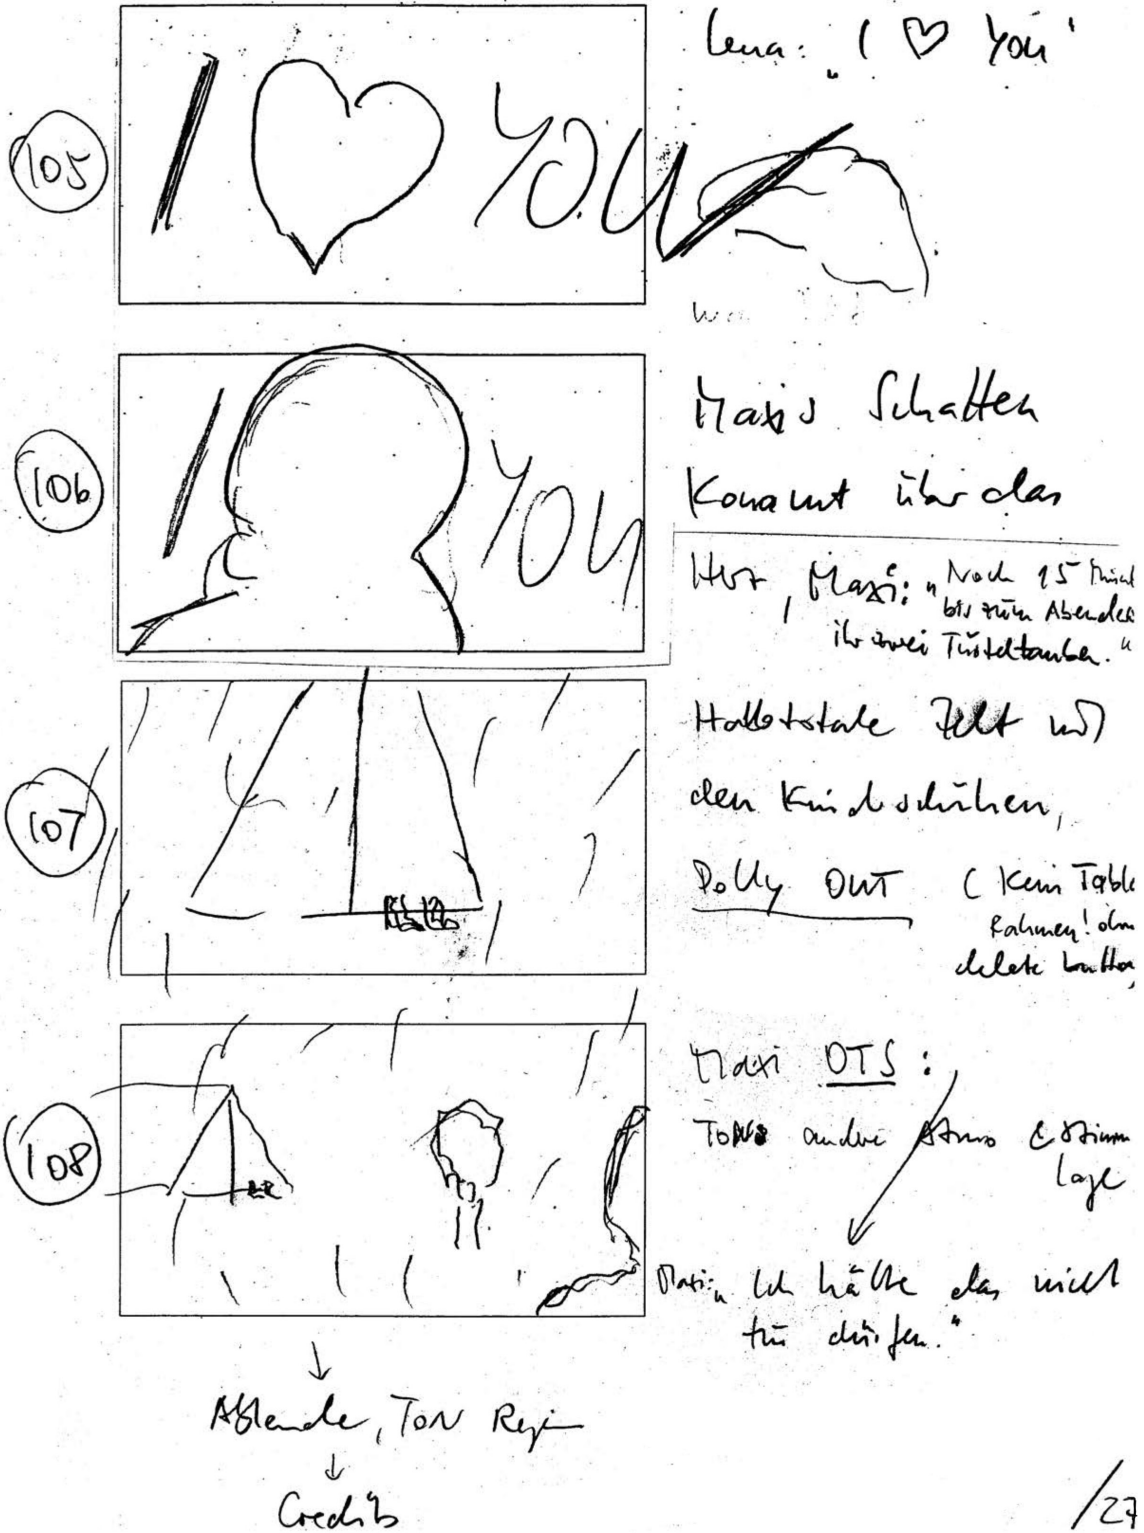 Lena: „I ♡ You"
105
I ♡ YOU
106
I YOU
Maxis Schatten
Kommt über das
Herz, Maxi: „Noch 15 Minut
bis zum Abendes
ihr zwei Turteltauben."
107
Halbtotale Zelt mit
den Kinderschuhen,
Dolly OUT (Kein Table
Rahmen! ohn
delete button
108
Maxi OTS:
Ton andre Atmo & Stimm
lage
Maxi: „Ich hätte das nicht
tun dürfen."
↓
Abblende, TON Regen
↓
Credits
/27